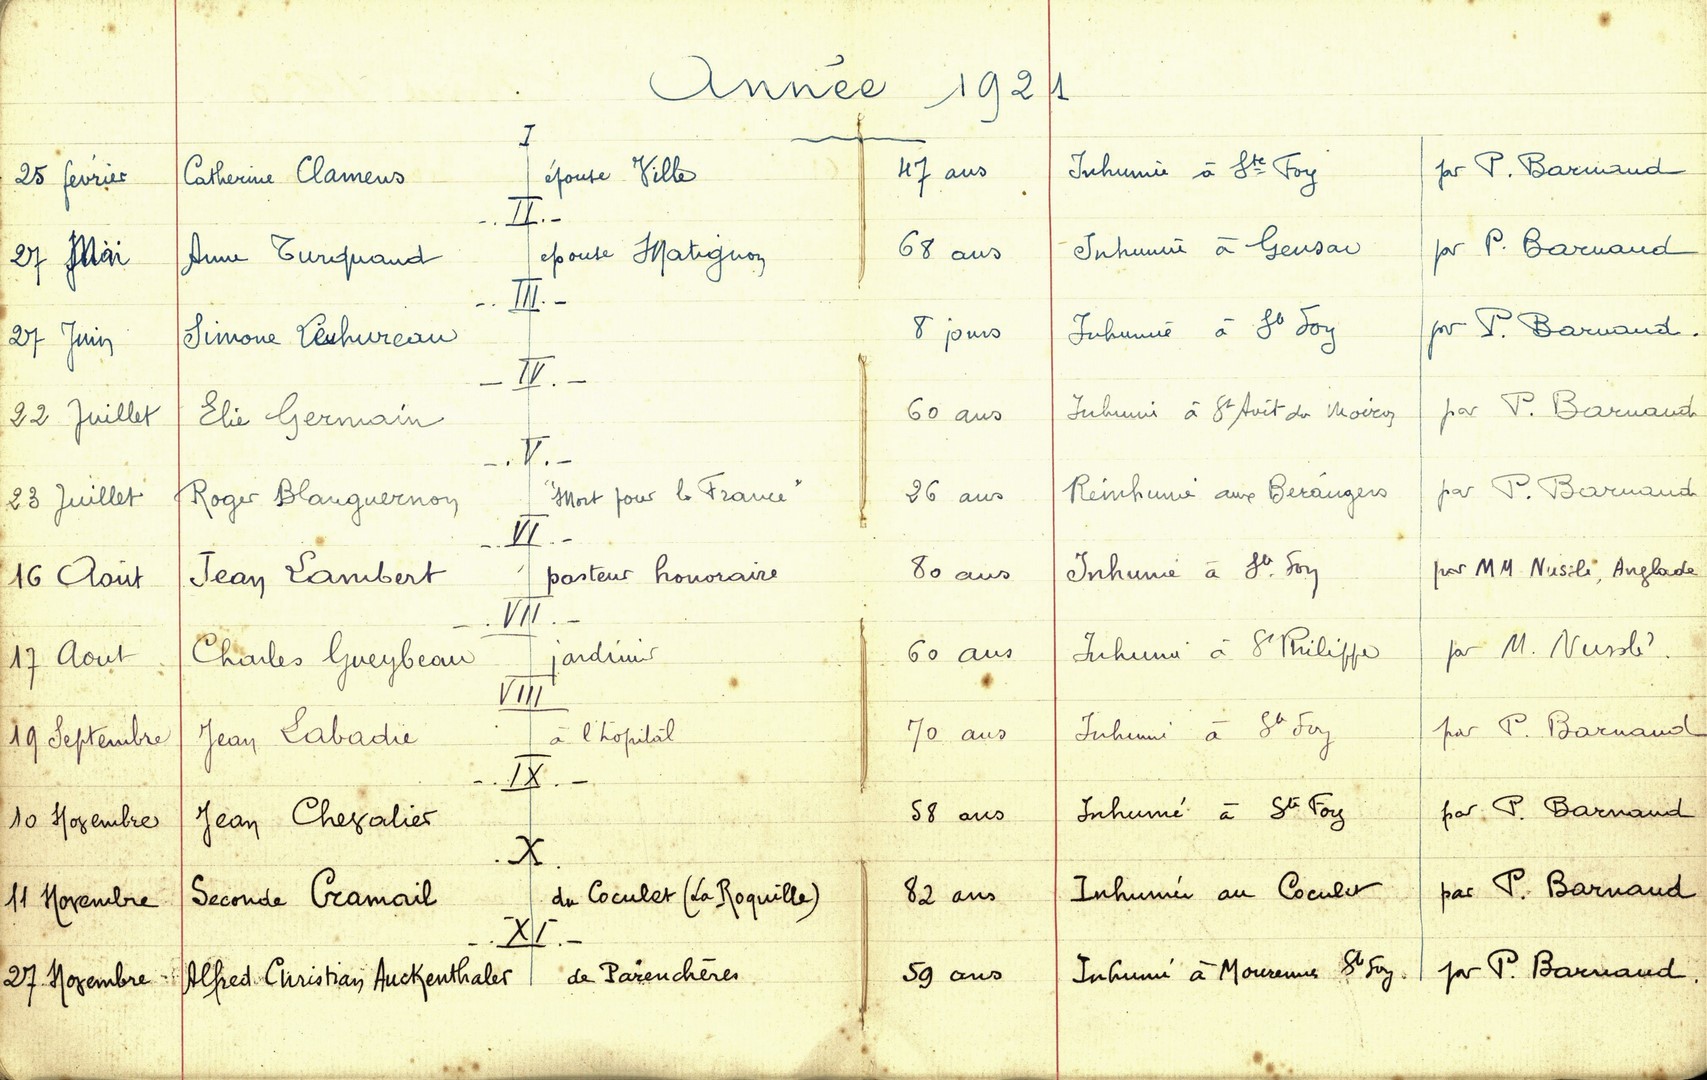 Année 1921
I
25 février Catherine Clamens épouse Ville 47 ans Inhumée à Ste Foy par P. Barnaud
-. II. -
27 Mai Anne Turquand épouse Matignon 68 ans Inhumée à Gensac par P. Barnaud
-. III. -
27 Juin Simone 8 jours Inhumée à Ste Foy par P. Barnaud.
- IV. -
22 Juillet Elie Germain 60 ans Inhumé à St Avit du Moiron par P. Barnaud
-. V. -
23 Juillet Roger Blanguernon "Mort pour la France" 26 ans Réinhumé aux Bérangers par P. Barnaud
-. VI. -
16 Août Jean Lambert pasteur honoraire 80 ans Inhumé à Ste. Foy par MM Nusslé, Anglade
-. VII. -
17 Aout Charles Gueybeau jardinier 60 ans Inhumé à St Philippe par M. Nusslé.
VIII
19 Septembre Jean Labadie à l'hôpital 70 ans Inhumé à Ste Foy par P. Barnaud
-. IX. -
10 Novembre Jean Chevalier 58 ans Inhumé à Ste Foy par P. Barnaud
. X .
11 Novembre Seconde Cramail du Coculet (La Roquille) 82 ans Inhumée au Coculet par P. Barnaud
-. XI. -
27 Novembre Alfred Christian Auckenthaler de Parenchères 59 ans Inhumé à Ste Foy. par P. Barnaud.